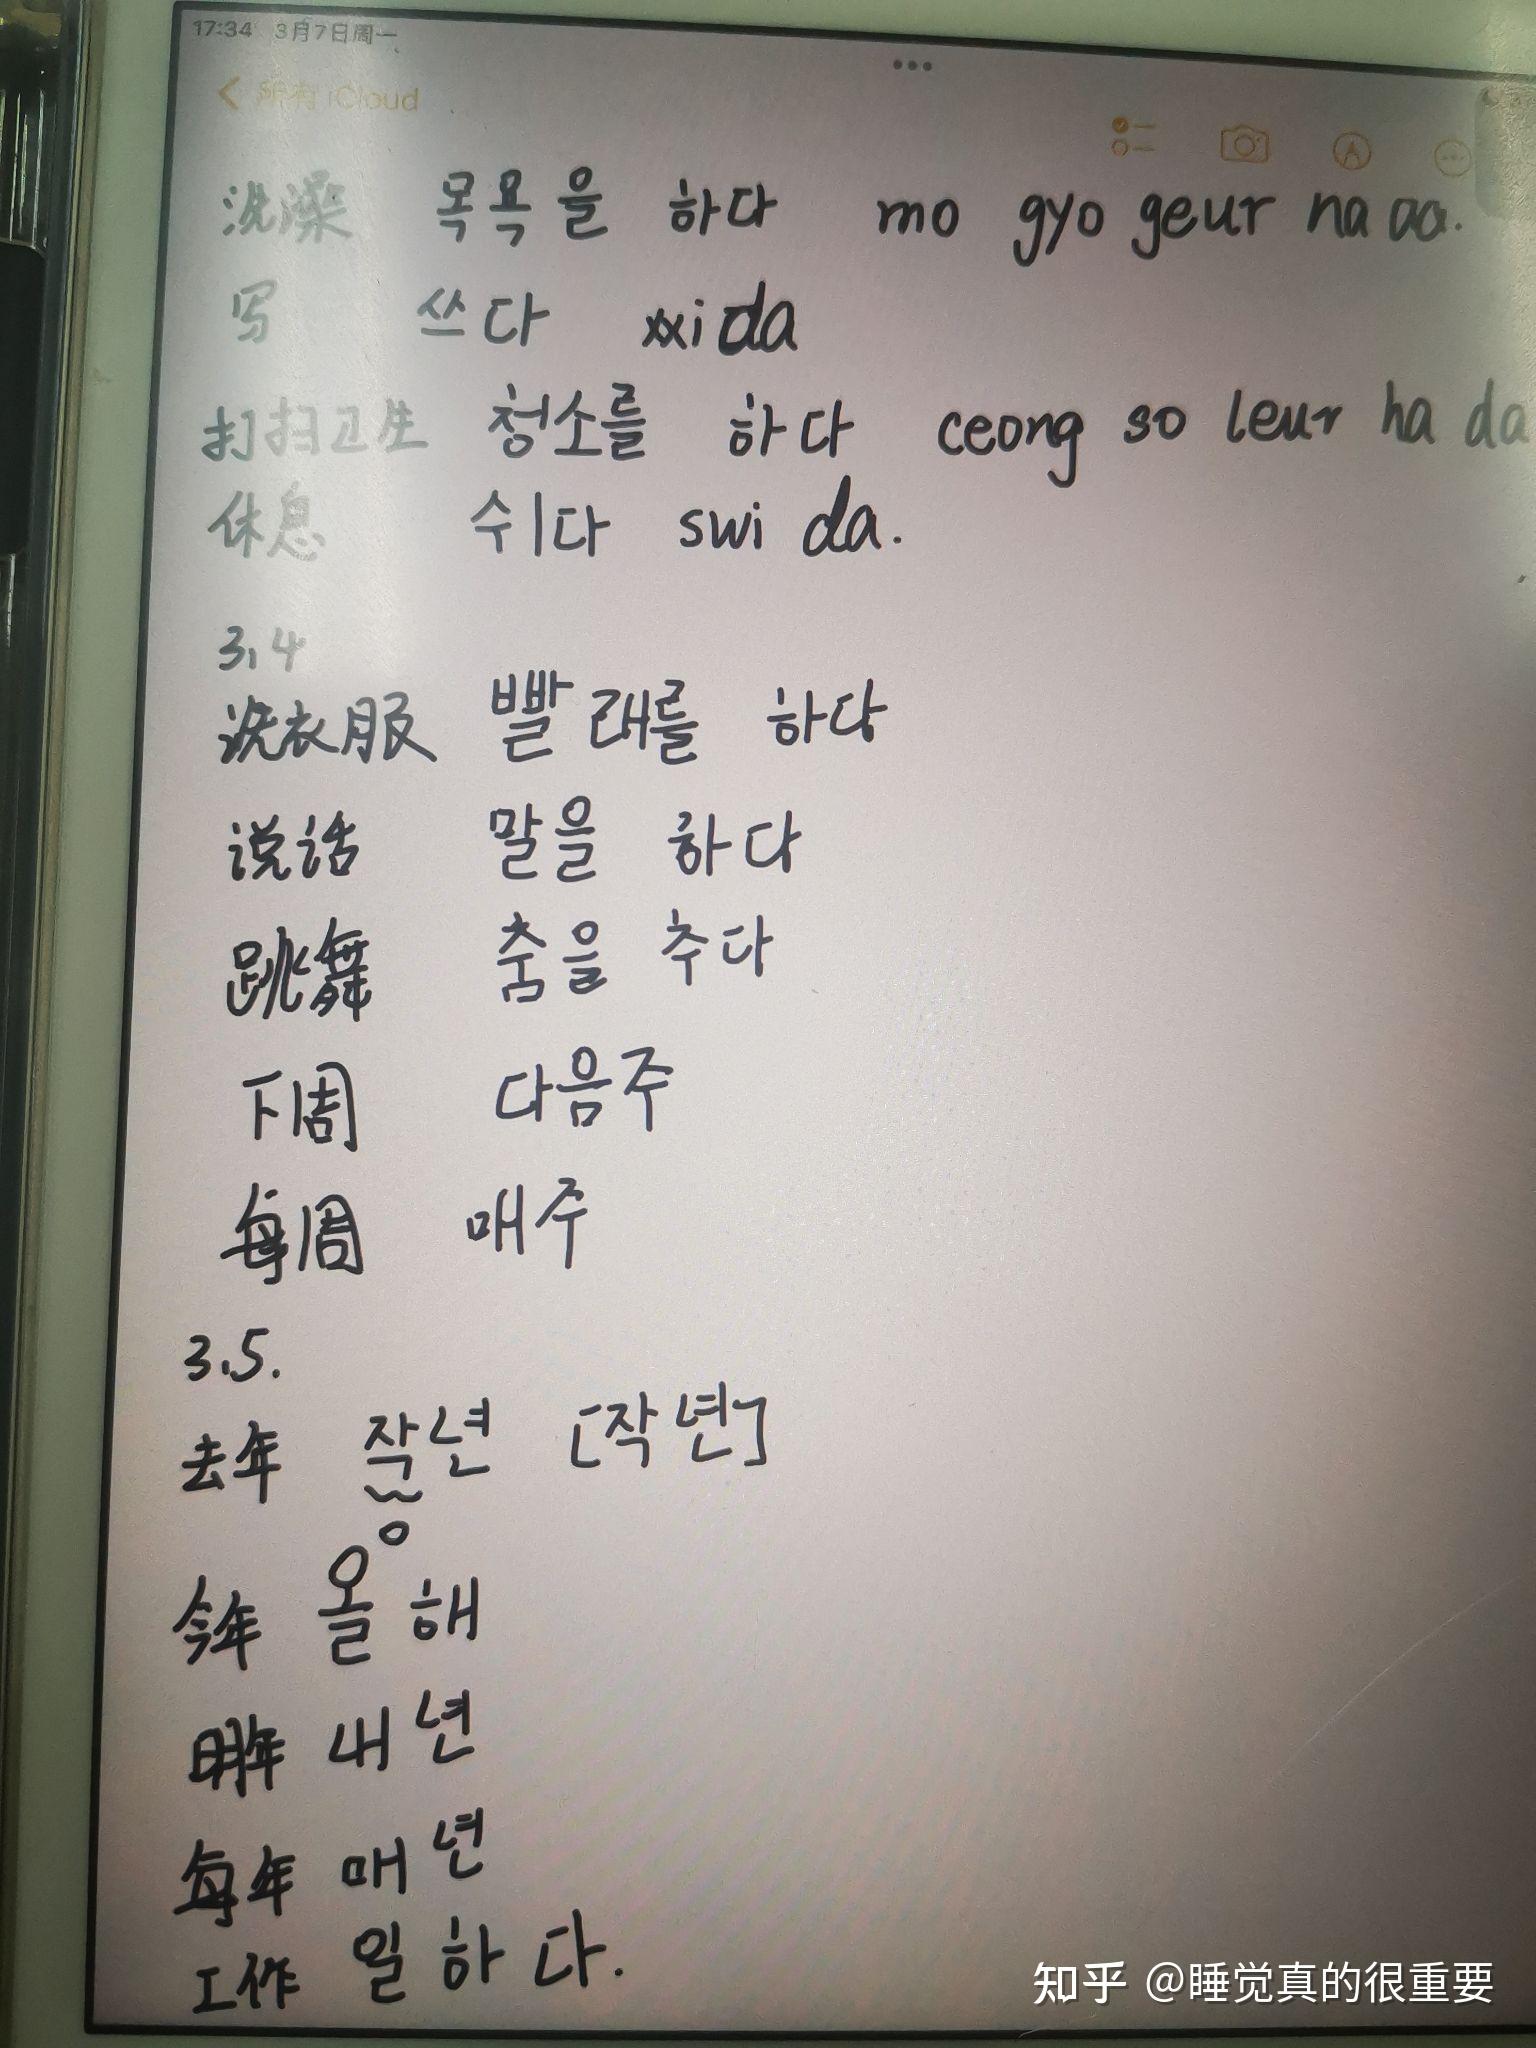 17:34 3月7日周一
所有 iCloud
洗澡 목욕을 하다 mo gyo geur ha da.
写 쓰다 xxi da
打扫卫生 청소를 하다 ceong so leur ha da
休息 쉬다 swi da.
3.4
洗衣服 빨래를 하다
说话 말을 하다
跳舞 춤을 추다
下周 다음주
每周 매주
3.5.
去年 작년 [작년]
ㅇ
今年 올해
明年 내년
每年 매년
工作 일하다.
知乎 @睡觉真的很重要